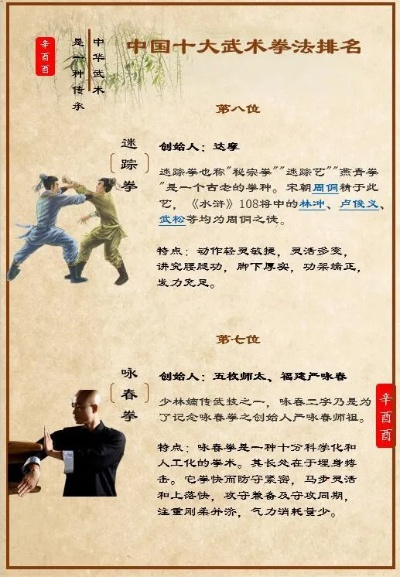 辛酉酉
中华武术
是一种传承
中国十大武术拳法排名
第八位
迷踪拳
创始人：达摩
迷踪拳也称"秘宗拳""迷踪艺""燕青拳
"是一个古老的拳种。宋朝周侗精于此
艺，《水浒》108将中的林冲、卢俊义、
武松等均为周侗之徒。
特点：动作轻灵敏捷，灵活多变，
讲究腰腿功，脚下厚实，功架端正，
发力充足。
第七位
咏春拳
创始人：五枚师太、福建严咏春
少林嫡传武技之一，咏春二字乃是为
了记念咏春拳之创始人严咏春师祖。
特点：咏春拳是一种十分科学化和
人工化的拳术。其长处在于埋身搏
击。它拳快而防守紧密，马步灵活
和上落快，攻守兼备及守攻同期，
注重刚柔并济，气力消耗量少。
辛酉酉